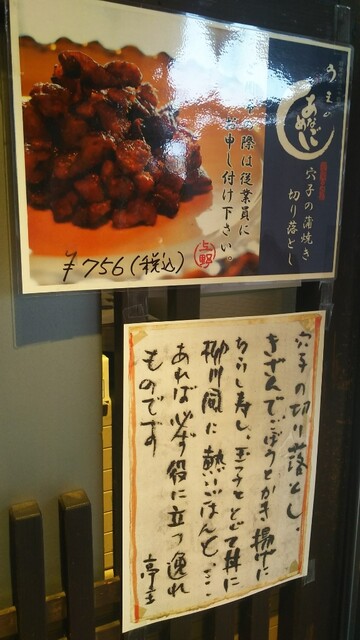 うえの
あなごめし
穴子の蒲焼き
切り落とし
の際は従業員に
お申し付け下さい。
上野
¥756(税込)
穴子の切り落とし、
きざんでごぼうとかき揚げに
ちらし寿し、玉子でとじて丼に
柳川風に熱いごはんと、…
あれば必ず役に立つ逸れ
ものです
亭主